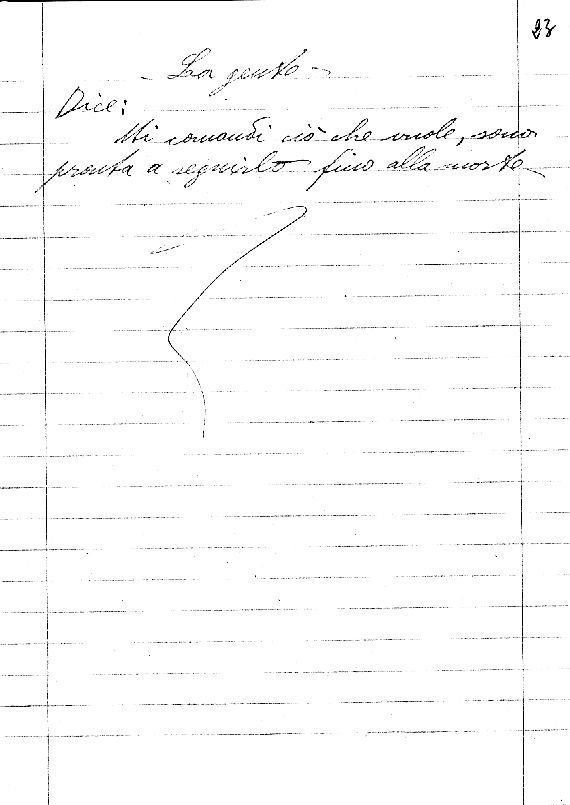 23
- La gente -
Dice:
Mi comandi ciò che vuole, sono
pronta a seguirlo fino alla morte